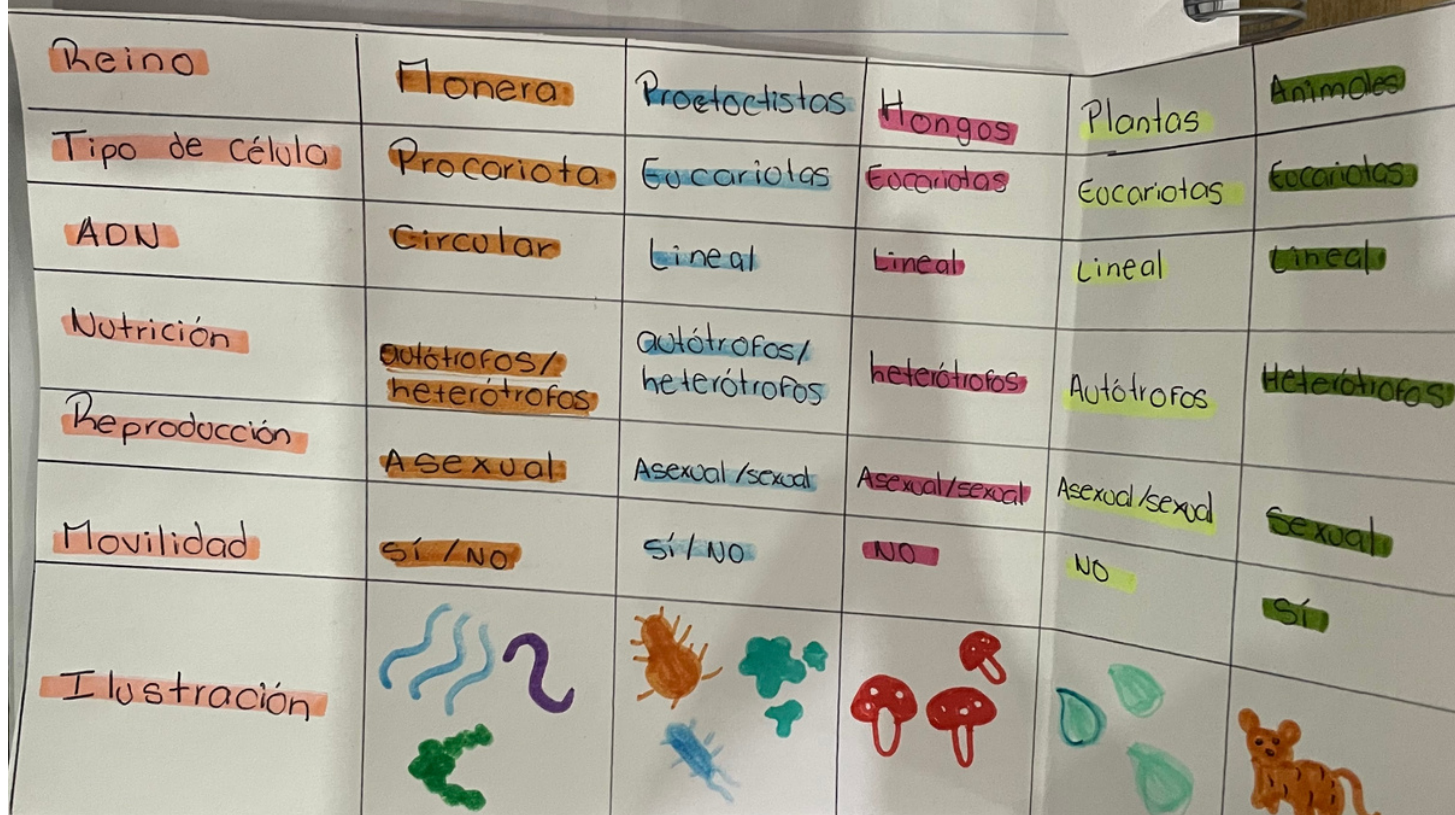 Reino Monera Proctoctistas Hongos Plantas Animales
Tipo de Célula Procariota Eucariotas Eucariotas Eucariotas Eucariotas
ADN Circular Lineal Lineal Lineal Lineal
Nutrición autótrofos/ heterótrofos autótrofos/ heterótrofos heterótrofos Autótrofos Heterótrofos
Reproducción Asexual Asexual/sexual Asexual/sexual Asexual/sexual Sexual
Movilidad SÍ/NO SÍ/NO NO NO SÍ
Ilustración